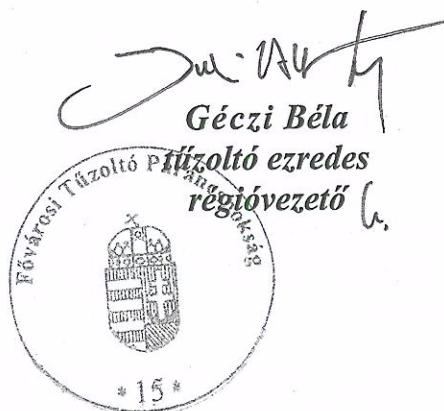 Géczi Béla
tűzoltó ezredes
régióvezető
Fővárosi Tűzoltó Parancsnokság
* 15 *